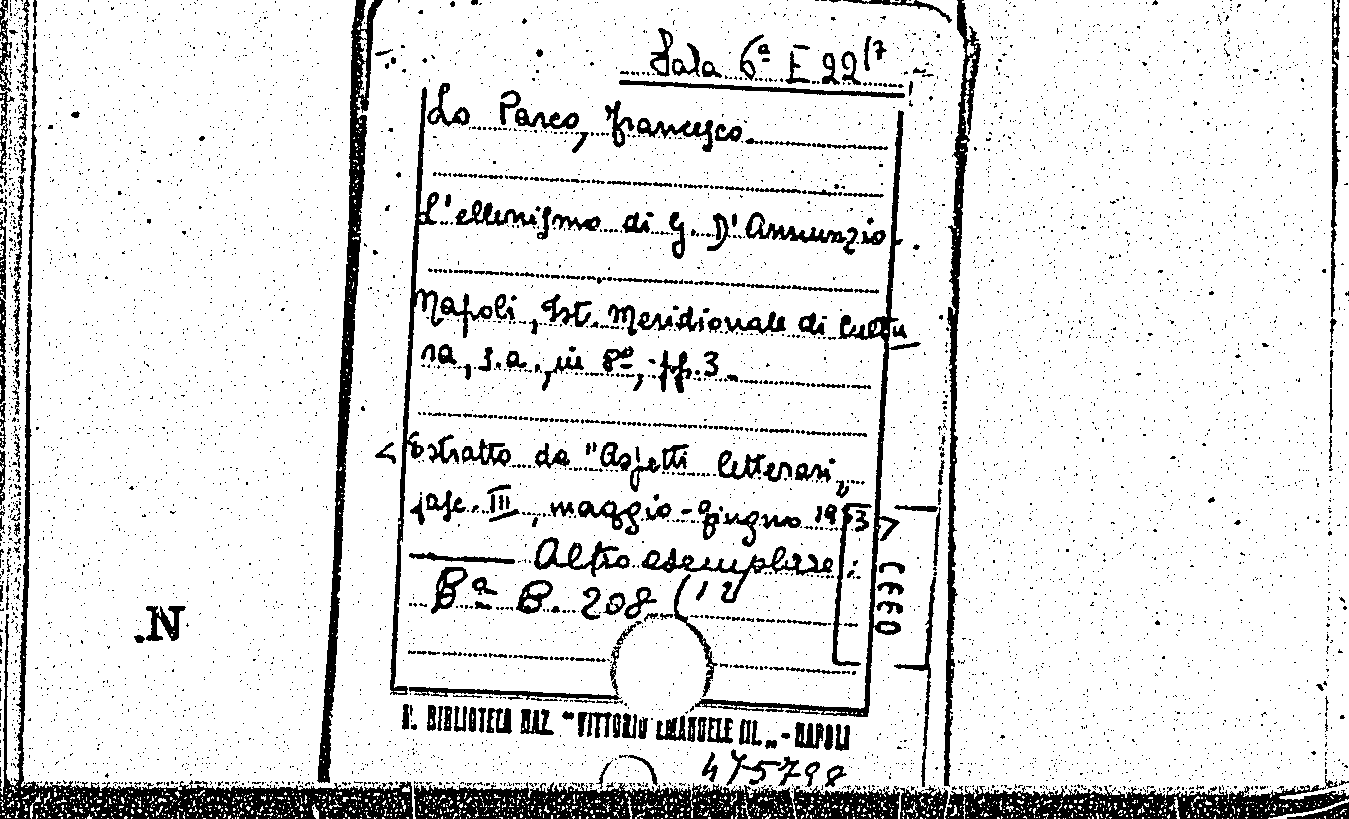 Sala 6ª E 22/7
Lo Parco, Francesco.
L'ellenismo di G. D'Annunzio.
Napoli, Ist. Meridionale di Cultu
ra, s.a., in 8º, pp. 3.
< Estratto da "Aspetti letterari",
fasc. III, maggio-giugno 1953 >
Altro esemplare:
Bª B. 208 (12
.N
R. BIBLIOTECA NAZ. "VITTORIO EMANUELE III." - NAPOLI
475798